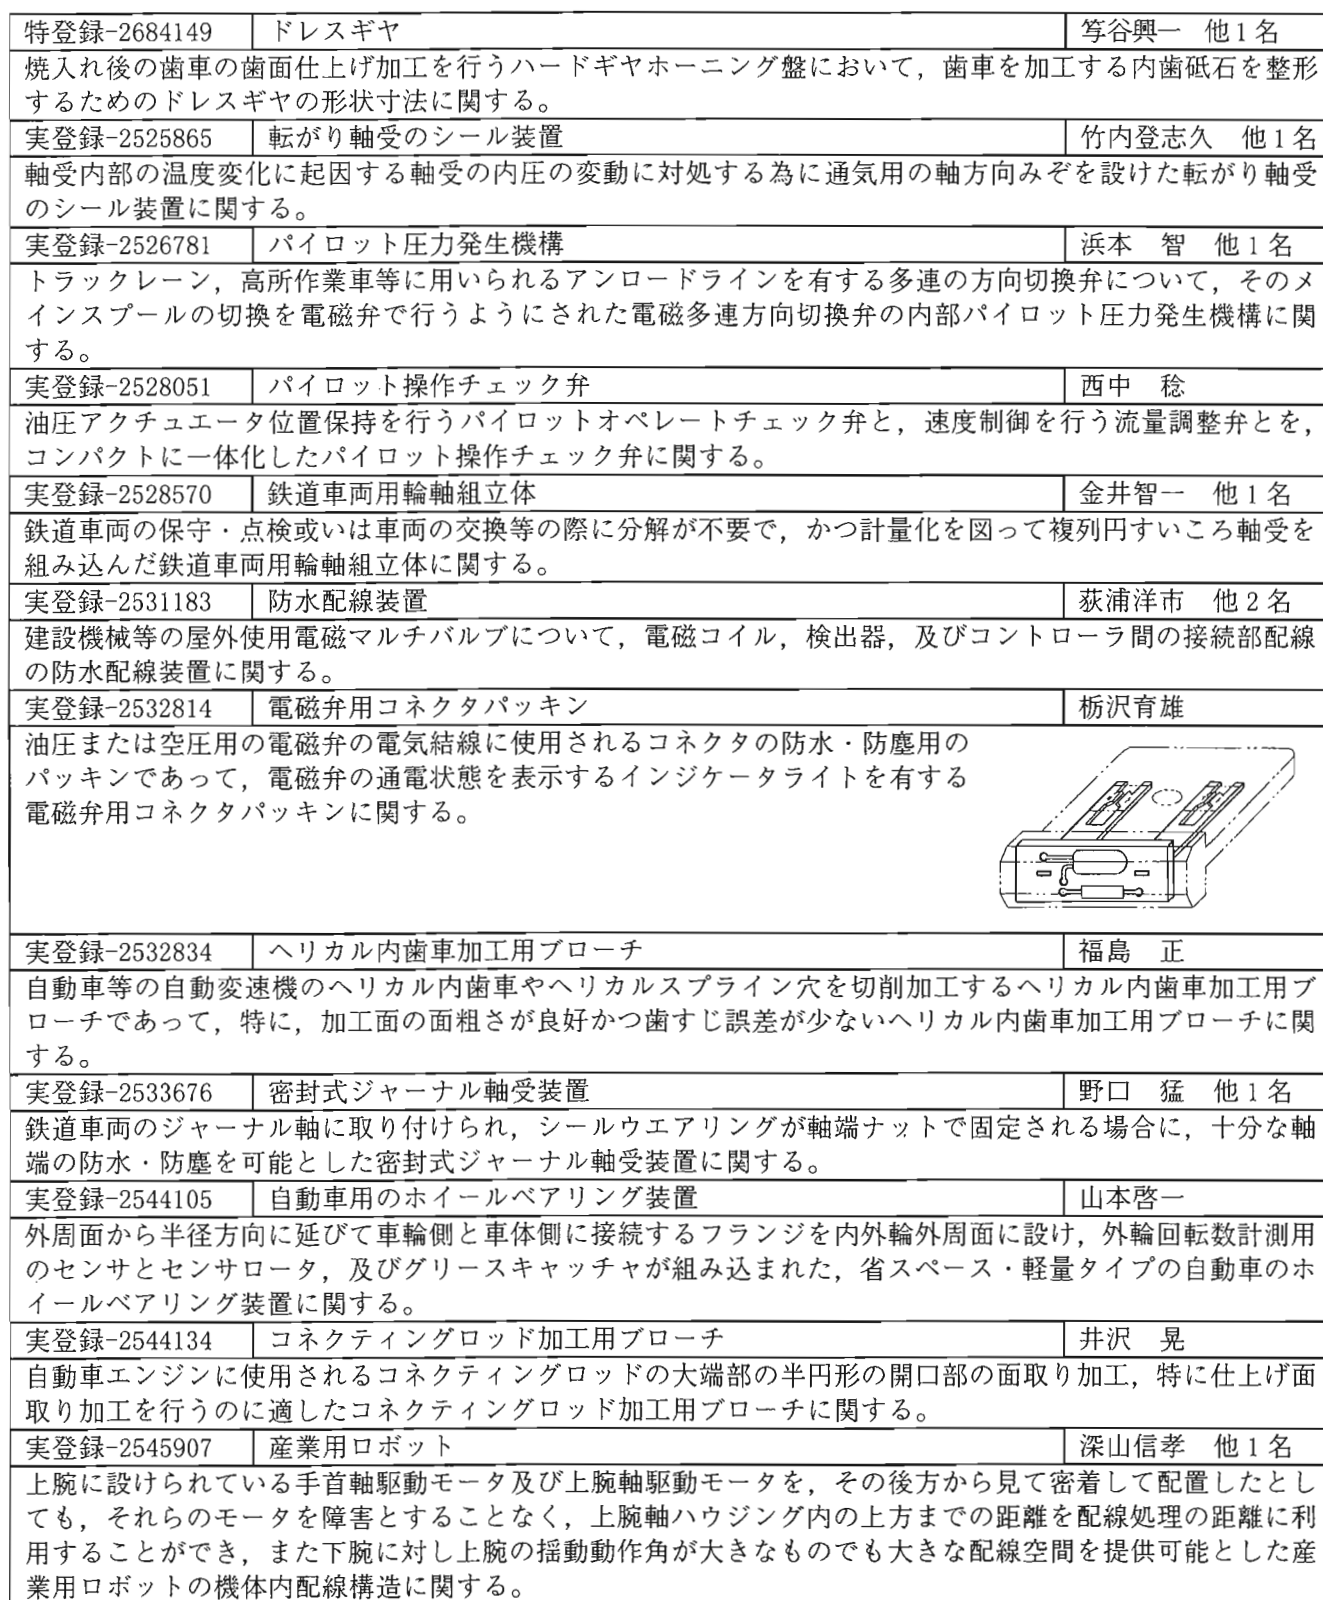 特登録-2684149 ドレスギヤ 笉谷興一 他1名
焼入れ後の歯車の歯面仕上げ加工を行うハードギヤホーニング盤において，歯車を加工する内歯砥石を整形
するためのドレスギヤの形状寸法に関する。
実登録-2525865 転がり軸受のシール装置 竹内登志久 他1名
軸受内部の温度変化に起因する軸受の内圧の変動に対処する為に通気用の軸方向みぞを設けた転がり軸受
のシール装置に関する。
実登録-2526781 パイロット圧力発生機構 浜本 智 他1名
トラックレーン，高所作業車等に用いられるアンロードラインを有する多連の方向切換弁について，そのメ
インスプールの切換を電磁弁で行うようにされた電磁多連方向切換弁の内部パイロット圧力発生機構に関
する。
実登録-2528051 パイロット操作チェック弁 西中 稔
油圧アクチュエータ位置保持を行うパイロットオペレートチェック弁と，速度制御を行う流量調整弁とを，
コンパクトに一体化したパイロット操作チェック弁に関する。
実登録-2528570 鉄道車両用輪軸組立体 金井智一 他1名
鉄道車両の保守・点検或いは車両の交換等の際に分解が不要で，かつ計量化を図って複列円すいころ軸受を
組み込んだ鉄道車両用輪軸組立体に関する。
実登録-2531183 防水配線装置 荻浦洋市 他2名
建設機械等の屋外使用電磁マルチバルブについて，電磁コイル，検出器，及びコントローラ間の接続部配線
の防水配線装置に関する。
実登録-2532814 電磁弁用コネクタパッキン 栃沢育雄
油圧または空圧用の電磁弁の電気結線に使用されるコネクタの防水・防塵用の
パッキンであって，電磁弁の通電状態を表示するインジケータライトを有する
電磁弁用コネクタパッキンに関する。
実登録-2532834 ヘリカル内歯車加工用ブローチ 福島 正
自動車等の自動変速機のヘリカル内歯車やヘリカルスプライン穴を切削加工するヘリカル内歯車加工用ブ
ローチであって，特に，加工面の面粗さが良好かつ歯すじ誤差が少ないヘリカル内歯車加工用ブローチに関
する。
実登録-2533676 密封式ジャーナル軸受装置 野口 猛 他1名
鉄道車両のジャーナル軸に取り付けられ，シールウエアリングが軸端ナットで固定される場合に，十分な軸
端の防水・防塵を可能とした密封式ジャーナル軸受装置に関する。
実登録-2544105 自動車用のホイールベアリング装置 山本啓一
外周面から半径方向に延びて車輪側と車体側に接続するフランジを内外輪外周面に設け，外輪回転数計測用
のセンサとセンサロータ，及びグリースキャッチャが組み込まれた，省スペース・軽量タイプの自動車のホ
イールベアリング装置に関する。
実登録-2544134 コネクティングロッド加工用ブローチ 井沢 晃
自動車エンジンに使用されるコネクティングロッドの大端部の半円形の開口部の面取り加工，特に仕上げ面
取り加工を行うのに適したコネクティングロッド加工用ブローチに関する。
実登録-2545907 産業用ロボット 深山信孝 他1名
上腕に設けられている手首軸駆動モータ及び上腕軸駆動モータを，その後方から見て密着して配置したとし
ても，それらのモータを障害とすることなく，上腕軸ハウジング内の上方までの距離を配線処理の距離に利
用することができ，また下腕に対し上腕の揺動動作角が大きなものでも大きな配線空間を提供可能とした産
業用ロボットの機体内配線構造に関する。